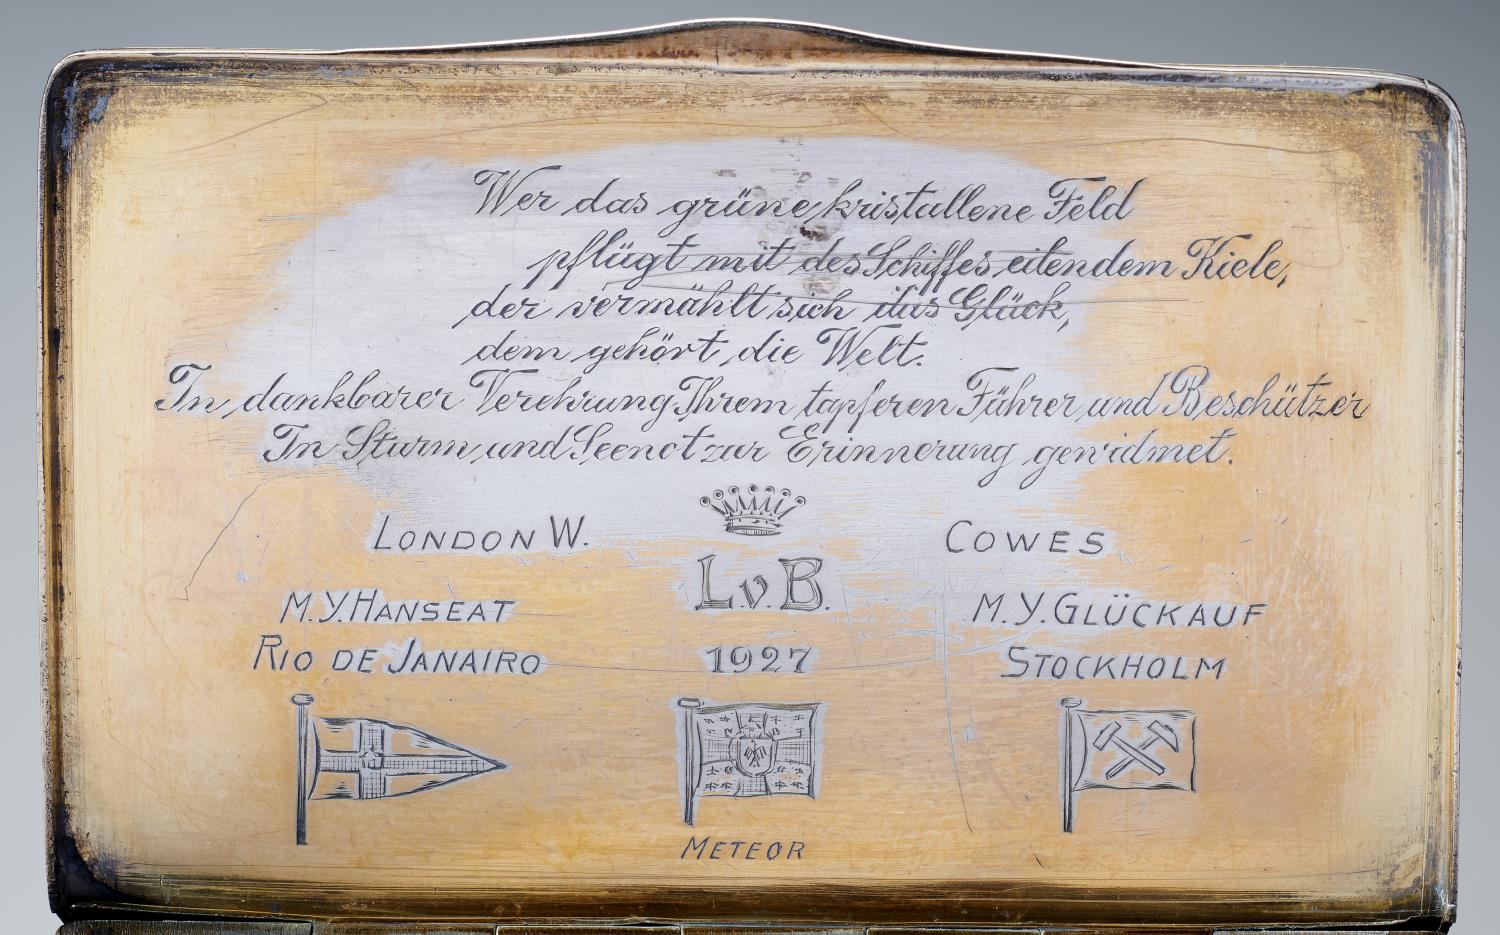 Wer das grüne kristallene Feld
pflügt mit des Schiffes eilendem Kiele,
der vermählt sich das Glück,
dem gehört die Welt.
In dankbarer Verehrung Ihrem tapferen Führer und Beschützer
In Sturm und Seenot zur Erinnerung gewidmet.
LONDON W. COWES
L.v.B.
M.Y. HANSEAT M.Y. GLÜCKAUF
RIO DE JANAIRO 1927 STOCKHOLM
METEOR